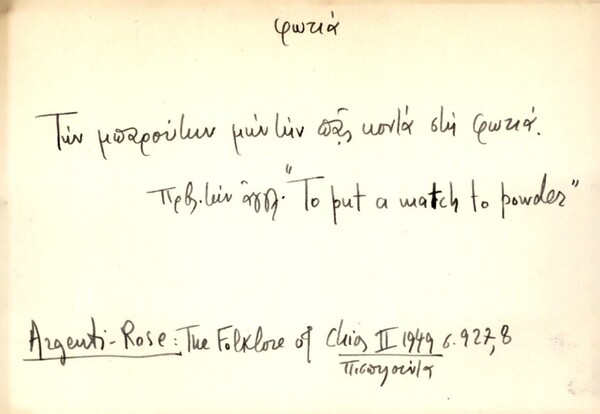 φωτιά
Τὴν μπαρούτην μὴν τὴν πᾷς κοντὰ στὴ φωτιά.
Πρβ. τὴν ἀγγλ. "To put a match to powder"
Argenti-Rose: The Folklore of Chios II 1949 σ. 927,8
Πισπηλούντα